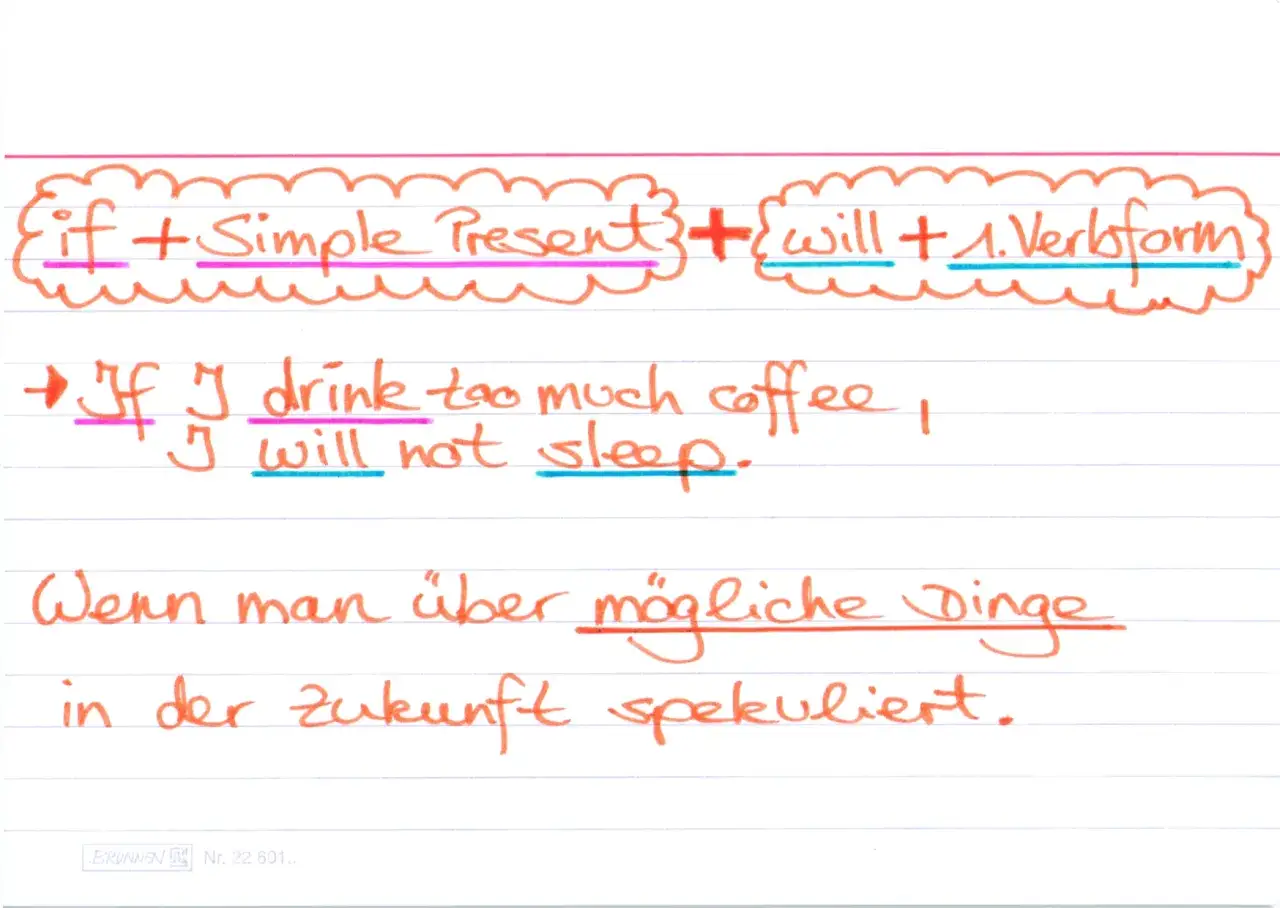 if + Simple Present + will + 1. Verbform
→ If I drink too much coffee,
I will not sleep.
Wenn man über mögliche Dinge
in der Zukunft spekuliert.
BRUNNEN Nr. 22 601..